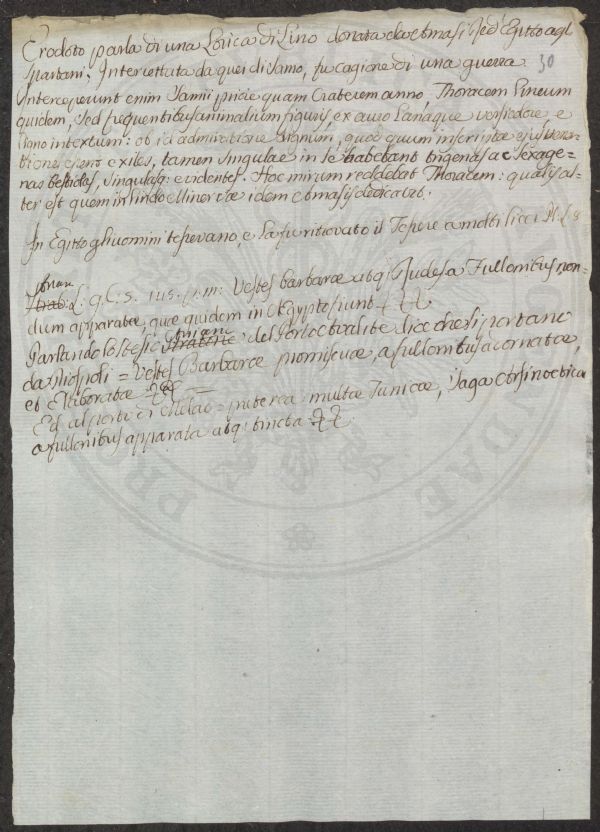 Erodoto parla di una Lorica di Lino donata da Amasi Re d'Egitto agl
Spartani. Intercettata da quei di Samo, fu cagione di una guerra
30
Interceperunt enim Samii pridie quam Craterem anno, Thoracem lineum
quidem, sed frequentibus animalium figuris ex auro Lanaque versicolore, e
ligno intextum: ob id admiratione dignum, quod quum inseri
essent exiles, tamen singulae in se habebant trigenas ac sexage-
nas bestiolas, singulasq: evidentes. Hoc mirum reddebat Thoracem: qualis al-
ter est quem in lindo Minervae idem Amasis dedicavit.
In Egitto gli uomini tessevano, e la fu ritrovato il Tessere
Arrian
Vestes barbarae absq: Rudes a Fullonibus non-
dum apparatae, quae quidem in Aegypto fiunt
Parlando lo stesso Arriano del Porto Avalite dice che si portano
da Diospoli = Vestes Barbarae promiscuae, a fullonibus acornatae,
et Elaboratae
Ed al porto di Malao = praeterea multae Tunicae, Saga Arsinoetica
a fullonibus apparata atq: tincta
PRO